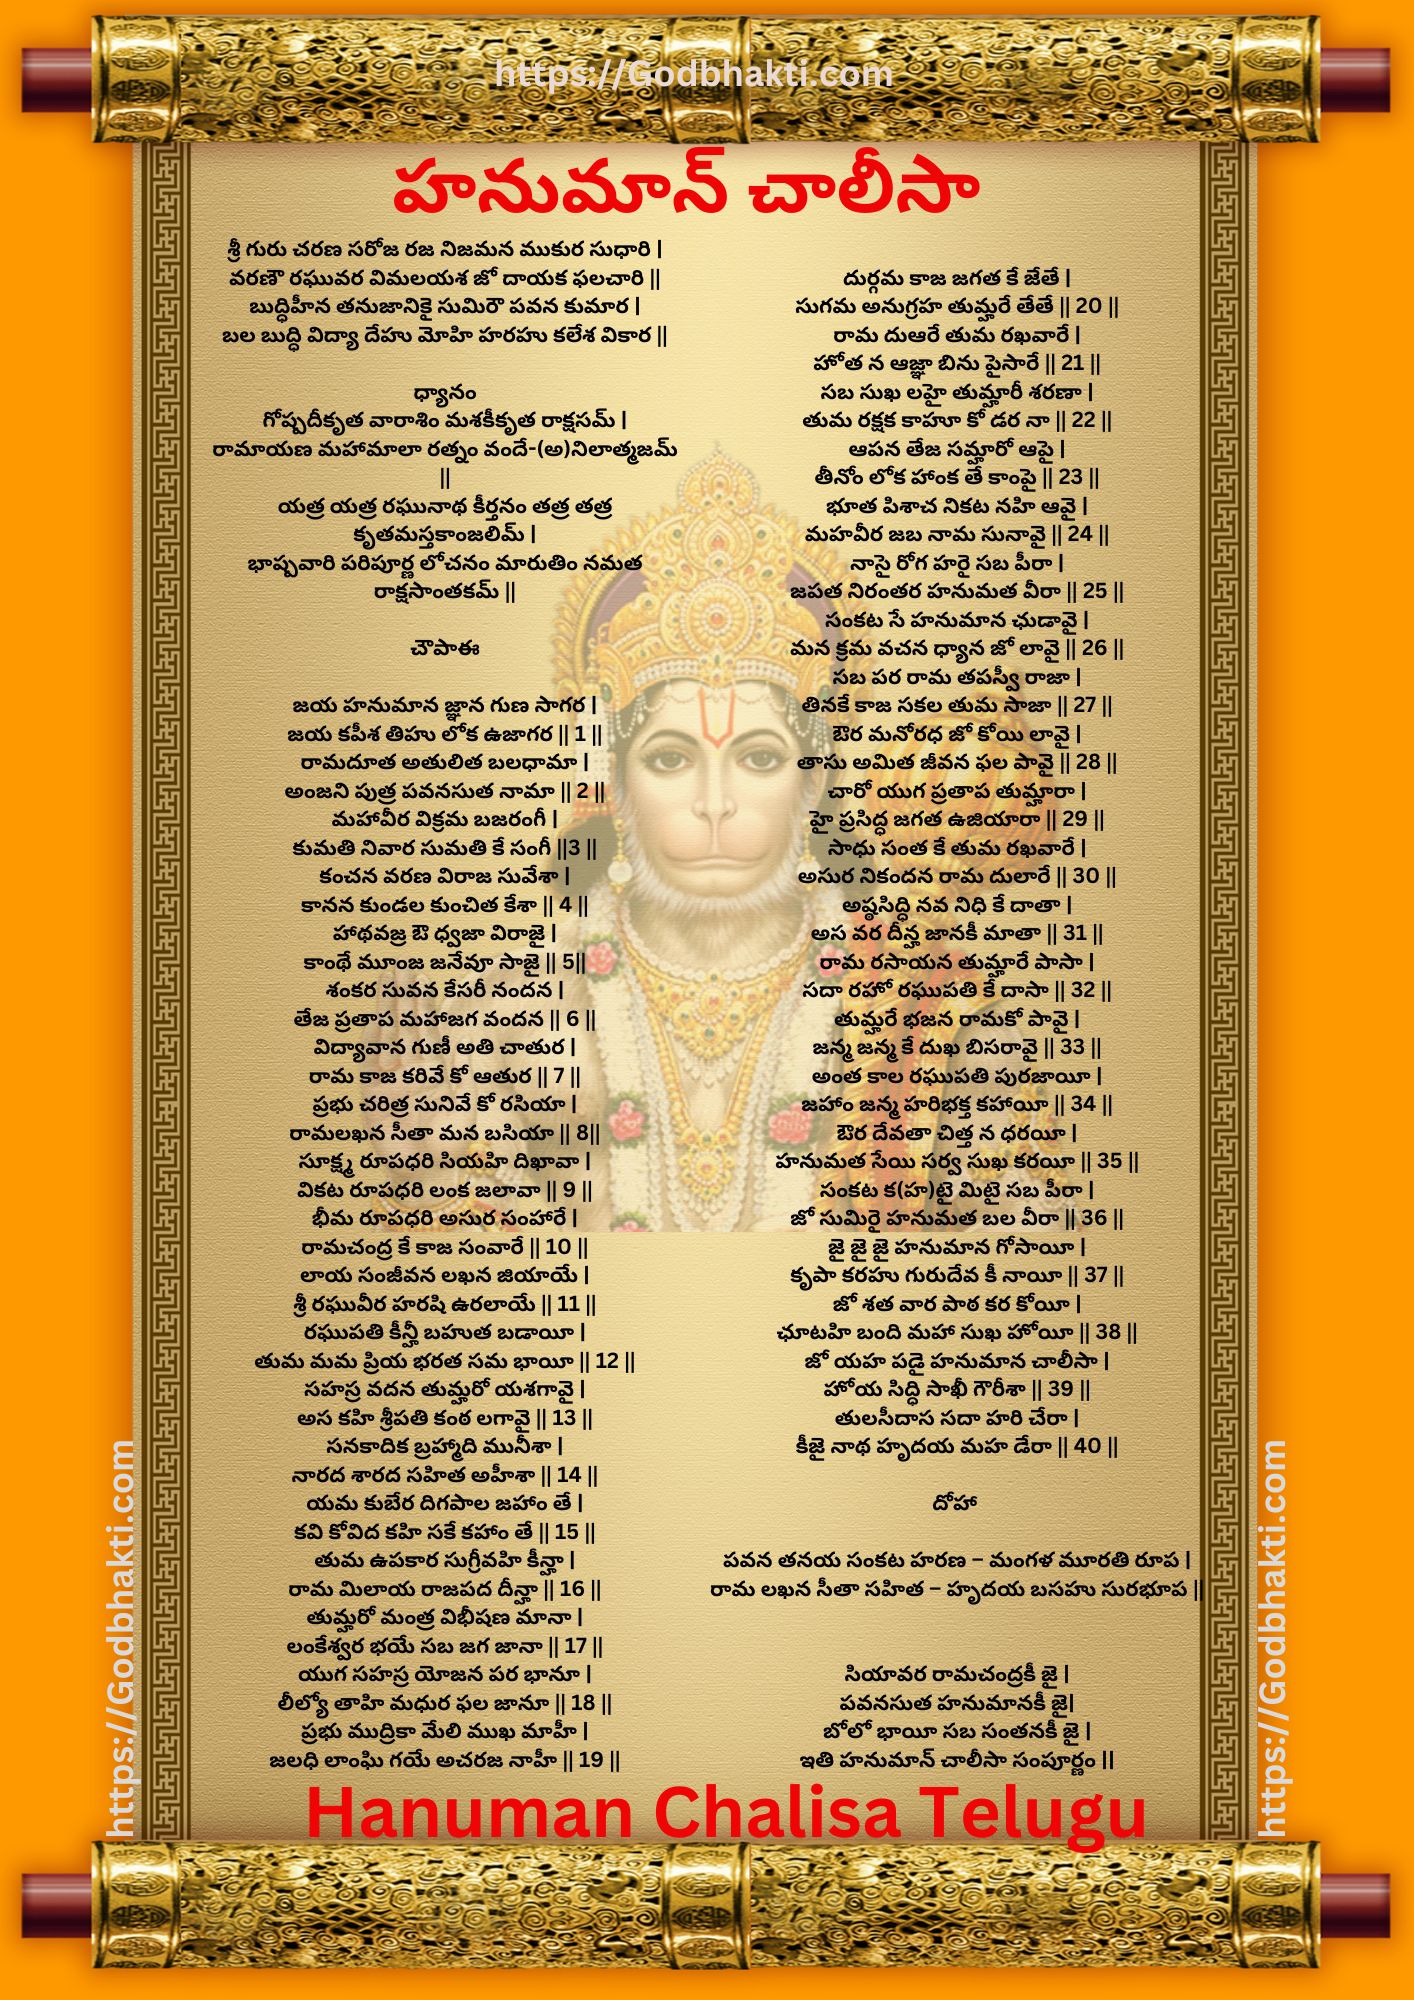 https://Godbhakti.com
హనుమాన్ చాలీసా
శ్రీ గురు చరణ సరోజ రజ నిజమన ముకుర సుధారి |
వరణౌ రఘువర విమలయశ జో దాయక ఫలచారి ||
బుద్ధిహీన తనుజానికై సుమిరౌ పవన కుమార |
బల బుద్ధి విద్యా దేహు మోహి హరహు కలేశ వికార ||
ధ్యానం
గోష్పదీకృత వారాశిం మశకీకృత రాక్షసమ్ |
రామాయణ మహామాలా రత్నం వందే-(అ)నిలాత్మజమ్
||
యత్ర యత్ర రఘునాథ కీర్తనం తత్ర తత్ర
కృతమస్తకాంజలిమ్ |
భాష్పవారి పరిపూర్ణ లోచనం మారుతిం నమత
రాక్షసాంతకమ్ ||
చౌపాఈ
జయ హనుమాన జ్ఞాన గుణ సాగర |
జయ కపీశ తిహు లోక ఉజాగర || 1 ||
రామదూత అతులిత బలధామా |
అంజని పుత్ర పవనసుత నామా || 2 ||
మహావీర విక్రమ బజరంగీ |
కుమతి నివార సుమతి కే సంగీ ||3 ||
కంచన వరణ విరాజ సువేశా |
కానన కుండల కుంచిత కేశా || 4 ||
హాథవజ్ర ఔ ధ్వజా విరాజై |
కాంథే మూంజ జనేవూ సాజై || 5||
శంకర సువన కేసరీ నందన |
తేజ ప్రతాప మహాజగ వందన || 6 ||
విద్యావాన గుణీ అతి చాతుర |
రామ కాజ కరివే కో ఆతుర || 7 ||
ప్రభు చరిత్ర సునివే కో రసియా |
రామలఖన సీతా మన బసియా || 8||
సూక్ష్మ రూపధరి సియహి దిఖావా |
వికట రూపధరి లంక జలావా || 9 ||
భీమ రూపధరి అసుర సంహారే |
రామచంద్ర కే కాజ సంవారే || 10 ||
లాయ సంజీవన లఖన జియాయే |
శ్రీ రఘువీర హరషి ఉరలాయే || 11 ||
రఘుపతి కీన్హీ బహుత బడాయీ |
తుమ మమ ప్రియ భరత సమ భాయీ || 12 ||
సహస్ర వదన తుమ్హరో యశగావై |
అస కహి శ్రీపతి కంఠ లగావై || 13 ||
సనకాదిక బ్రహ్మాది మునీశా |
నారద శారద సహిత అహీశా || 14 ||
యమ కుబేర దిగపాల జహాం తే |
కవి కోవిద కహి సకే కహాం తే || 15 ||
తుమ ఉపకార సుగ్రీవహి కీన్హా |
రామ మిలాయ రాజపద దీన్హా || 16 ||
తుమ్హరో మంత్ర విభీషణ మానా |
లంకేశ్వర భయే సబ జగ జానా || 17 ||
యుగ సహస్ర యోజన పర భానూ |
లీల్యో తాహి మధుర ఫల జానూ || 18 ||
ప్రభు ముద్రికా మేలి ముఖ మాహీ |
జలధి లాంఘి గయే అచరజ నాహీ || 19 ||
దుర్గమ కాజ జగత కే జేతే |
సుగమ అనుగ్రహ తుమ్హరే తేతే || 20 ||
రామ దుఆరే తుమ రఖవారే |
హోత న ఆజ్ఞా బిను పైసారే || 21 ||
సబ సుఖ లహై తుమ్హారీ శరణా |
తుమ రక్షక కాహూ కో డర నా || 22 ||
ఆపన తేజ సమ్హారో ఆపై |
తీనోం లోక హాంక తే కాంపై || 23 ||
భూత పిశాచ నికట నహి ఆవై |
మహవీర జబ నామ సునావై || 24 ||
నాసై రోగ హరై సబ పీరా |
జపత నిరంతర హనుమత వీరా || 25 ||
సంకట సే హనుమాన ఛుడావై |
మన క్రమ వచన ధ్యాన జో లావై || 26 ||
సబ పర రామ తపస్వీ రాజా |
తినకే కాజ సకల తుమ సాజా || 27 ||
ఔర మనోరధ జో కోయి లావై |
తాసు అమిత జీవన ఫల పావై || 28 ||
చారో యుగ ప్రతాప తుమ్హారా |
హై ప్రసిద్ధ జగత ఉజియారా || 29 ||
సాధు సంత కే తుమ రఖవారే |
అసుర నికందన రామ దులారే || 30 ||
అష్ఠసిద్ధి నవ నిధి కే దాతా |
అస వర దీన్హ జానకీ మాతా || 31 ||
రామ రసాయన తుమ్హారే పాసా |
సదా రహో రఘుపతి కే దాసా || 32 ||
తుమ్హరే భజన రామకో పావై |
జన్మ జన్మ కే దుఖ బిసరావై || 33 ||
అంత కాల రఘుపతి పురజాయీ |
జహాం జన్మ హరిభక్త కహాయీ || 34 ||
ఔర దేవతా చిత్త న ధరయీ |
హనుమత సేయి సర్వ సుఖ కరయీ || 35 ||
సంకట క(హ)టై మిటై సబ పీరా |
జో సుమిరై హనుమత బల వీరా || 36 ||
జై జై జై హనుమాన గోసాయీ |
కృపా కరహు గురుదేవ కీ నాయీ || 37 ||
జో శత వార పాఠ కర కోయీ |
ఛూటహి బంది మహా సుఖ హోయీ || 38 ||
జో యహ పడై హనుమాన చాలీసా |
హోయ సిద్ధి సాఖీ గౌరీశా || 39 ||
తులసీదాస సదా హరి చేరా |
కీజై నాథ హృదయ మహ డేరా || 40 ||
దోహా
పవన తనయ సంకట హరణ – మంగళ మూరతి రూప |
రామ లఖన సీతా సహిత – హృదయ బసహు సురభూప ||
సియావర రామచంద్రకీ జై |
పవనసుత హనుమానకీ జై|
బోలో భాయీ సబ సంతనకీ జై |
ఇతి హనుమాన్ చాలీసా సంపూర్ణం ||
Hanuman Chalisa Telugu
https://Godbhakti.com
https://Godbhakti.com